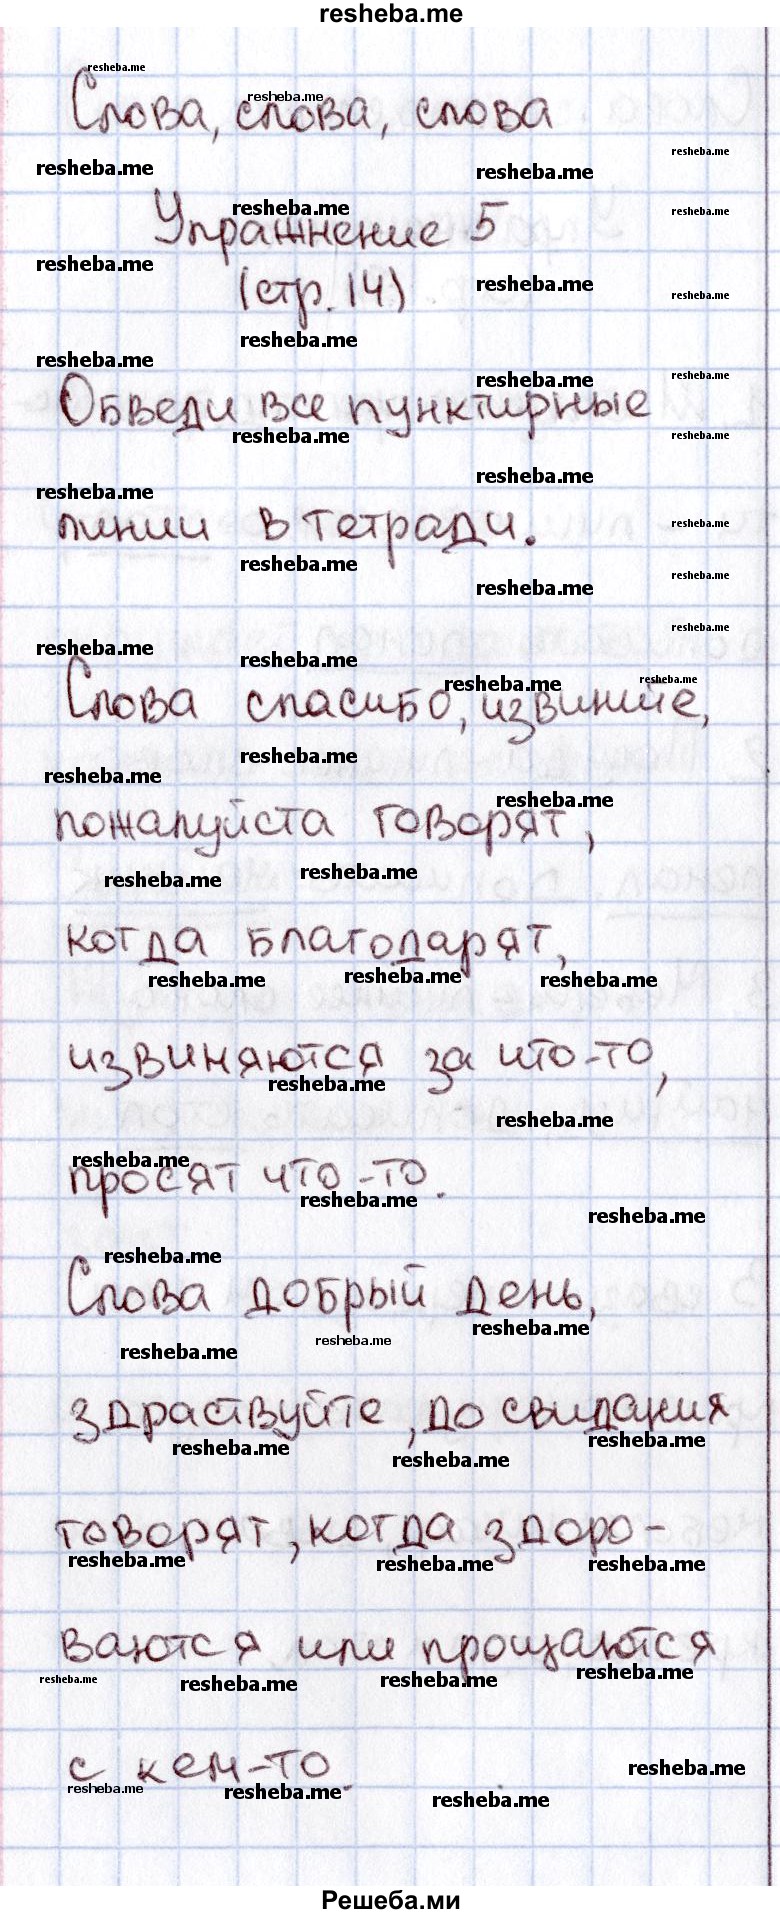 resheba.me
Слова, слова, слова
Упражнение 5
(стр. 14)
Обведи все пунктирные
линии в тетради.
Слова спасибо, извините,
пожалуйста говорят,
когда благодарят,
извиняются за что-то,
просят что-то.
Слова добрый день,
здраствуйте, до свидания
говорят, когда здоро-
ваются или прощаются
с кем-то.
Решеба.ми